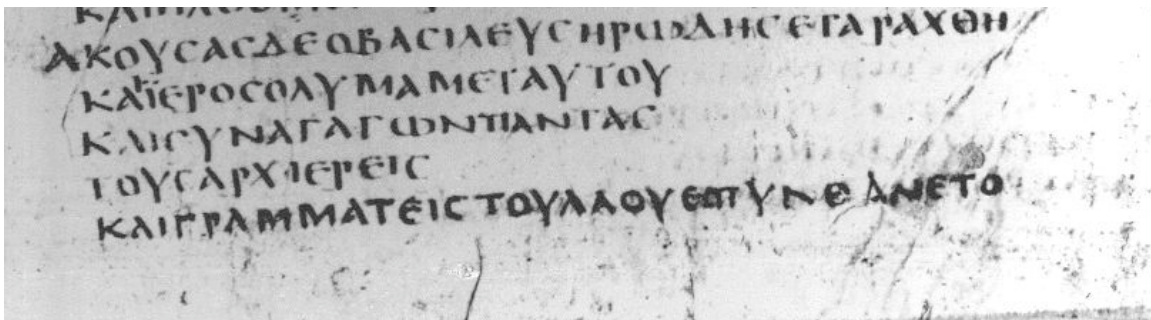 ΑΚΟΥCΑCΔΕΟΒΑCΙΛΕΥCΗΡΩΔΗCΕΤΑΡΑΧΘΗ
ΚΑΪΕΡΟCΟΛΥΜΑΜΕΤΑΥΤΟΥ
ΚΑΙCΥΝΑΓΑΓΩΝΠΑΝΤΑC
ΤΟΥCΑΡΧΙΕΡΕΙC
ΚΑΙΓΡΑΜΜΑΤΕΙCΤΟΥΛΑΟΥΕΠΥΝΘΑΝΕΤΟ